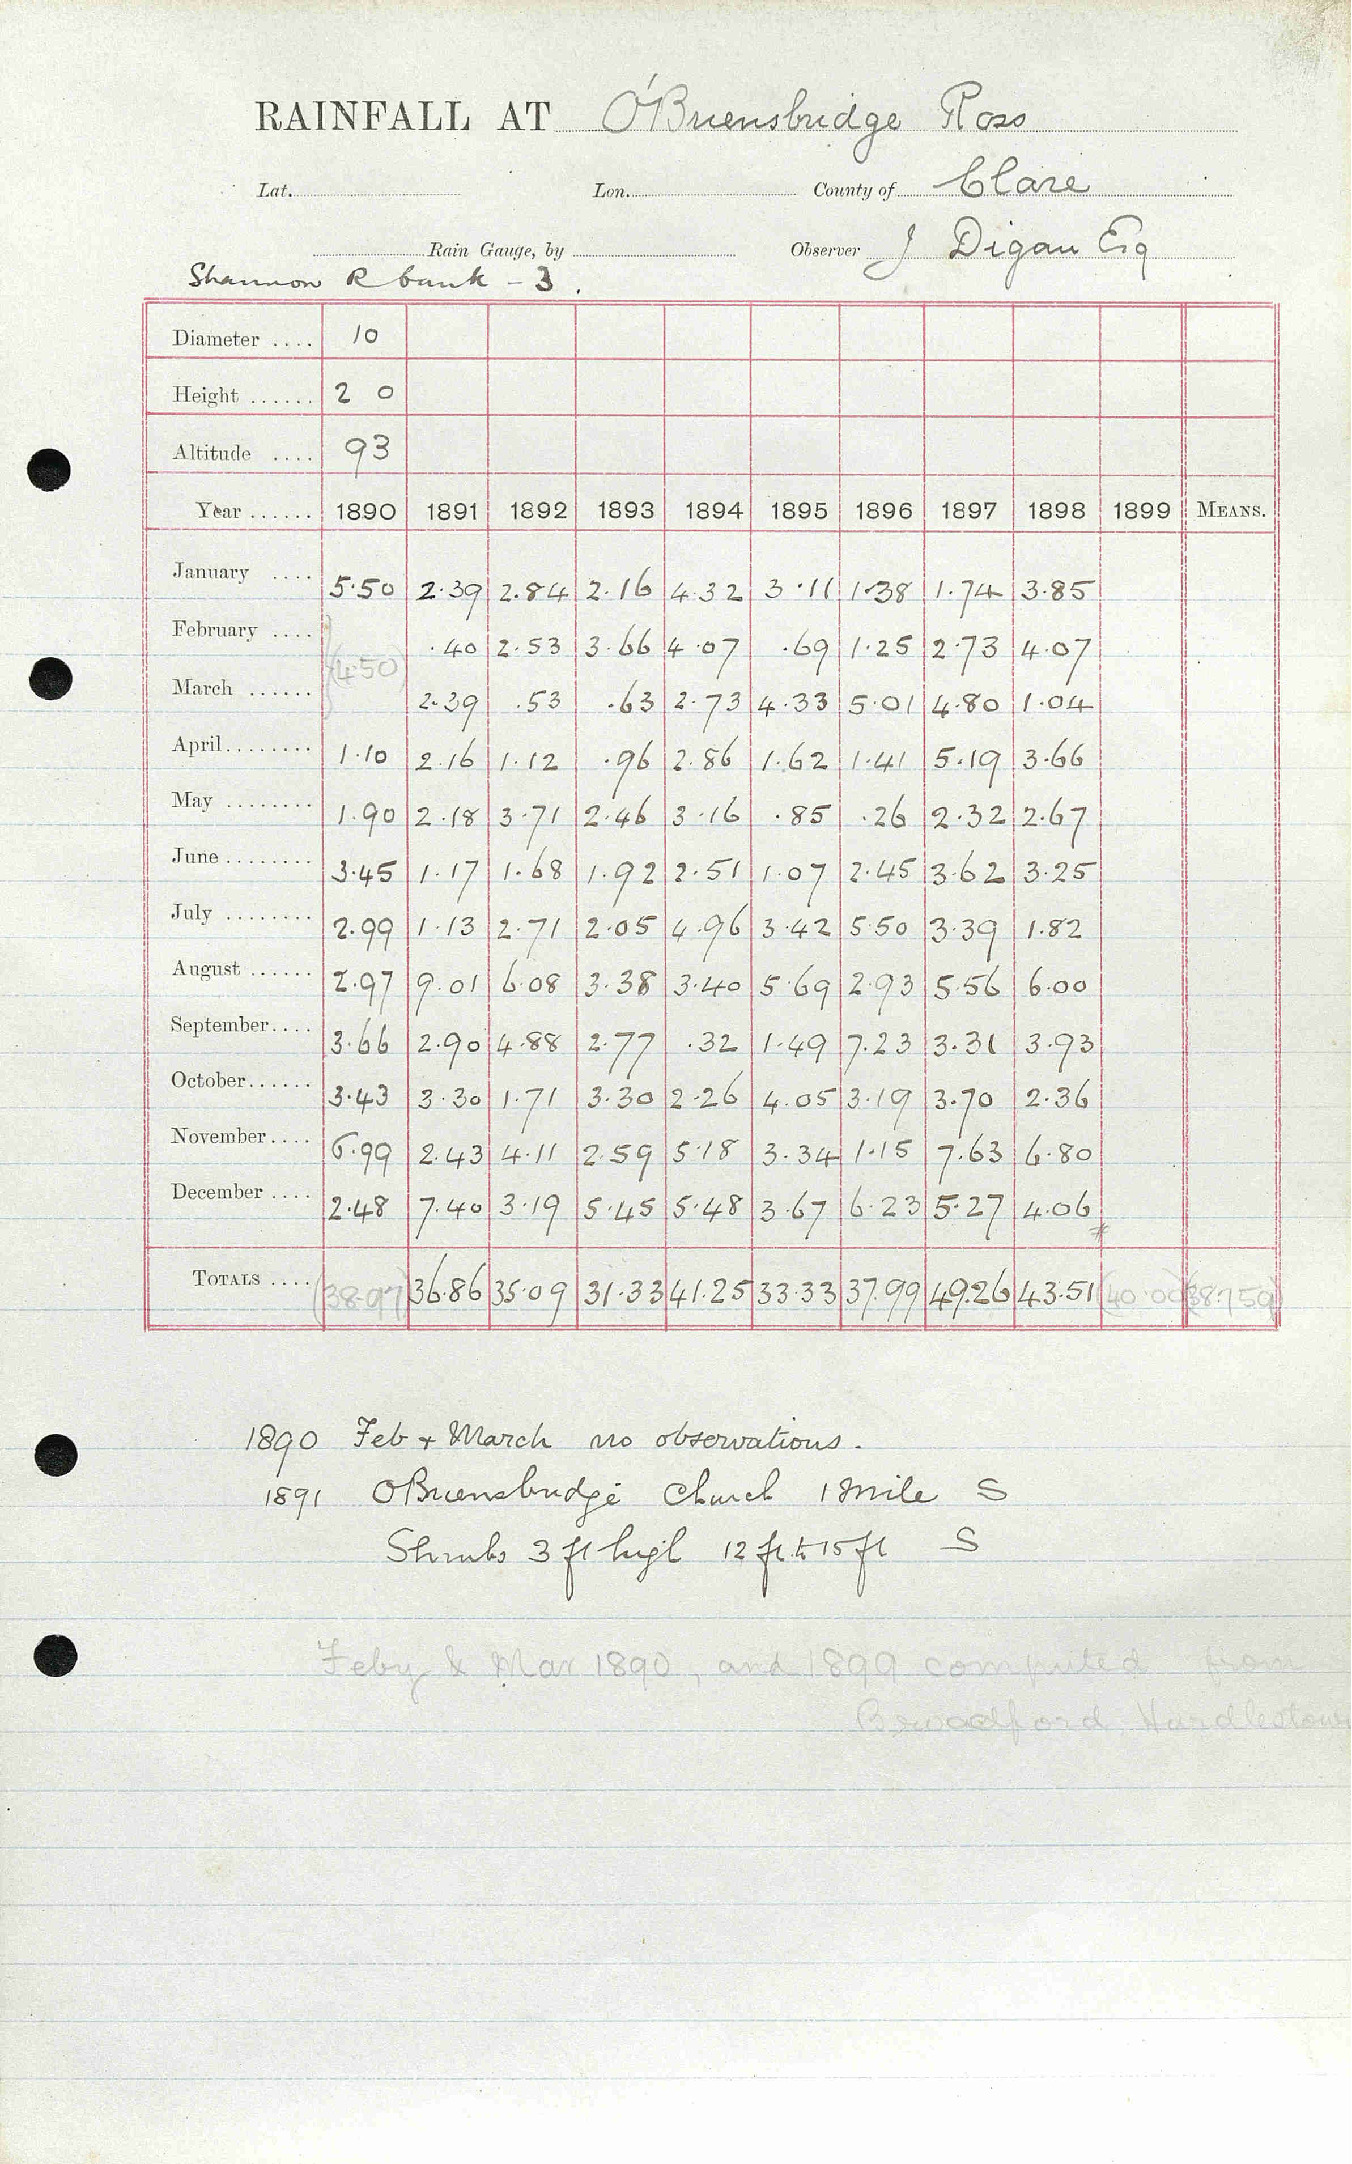 RAINFALL AT O'Briensbridge Ross
Lat. Lon. County of Clare
Rain Gauge, by Observer J Digan Esq
Shannon R bank - 3.
Diameter .... 10
Height ...... 2 0
Altitude .... 93
Year ...... 1890 1891 1892 1893 1894 1895 1896 1897 1898 1899 MEANS.
January .... 5.50 2.39 2.84 2.16 4.32 3.11 1.38 1.74 3.85
February .... .40 2.53 3.66 4.07 .69 1.25 2.73 4.07
(4.50)
March ...... 2.39 .53 .63 2.73 4.33 5.01 4.80 1.04
April........ 1.10 2.16 1.12 .96 2.86 1.62 1.41 5.19 3.66
May ........ 1.90 2.18 3.71 2.46 3.16 .85 .26 2.32 2.67
June........ 3.45 1.17 1.68 1.92 2.51 1.07 2.45 3.62 3.25
July ........ 2.99 1.13 2.71 2.05 4.96 3.42 5.50 3.39 1.82
August ...... 2.97 9.01 6.08 3.38 3.40 5.69 2.93 5.56 6.00
September.... 3.66 2.90 4.88 2.77 .32 1.49 7.23 3.31 3.93
October...... 3.43 3.30 1.71 3.30 2.26 4.05 3.19 3.70 2.36
November.... 6.99 2.43 4.11 2.59 5.18 3.34 1.15 7.63 6.80
December .... 2.48 7.40 3.19 5.45 5.48 3.67 6.23 5.27 4.06
TOTALS .... (38.97) 36.86 35.09 31.33 41.25 33.33 37.99 49.26 43.51 (40.00) (38.759)
1890 Feb + March no observations.
1891 O'Briensbridge Church 1 mile S
Shrubs 3 ft high 12 ft to 15 ft S
Feby & Mar 1890, and 1899 computed from
Broadford, Hurdlestown